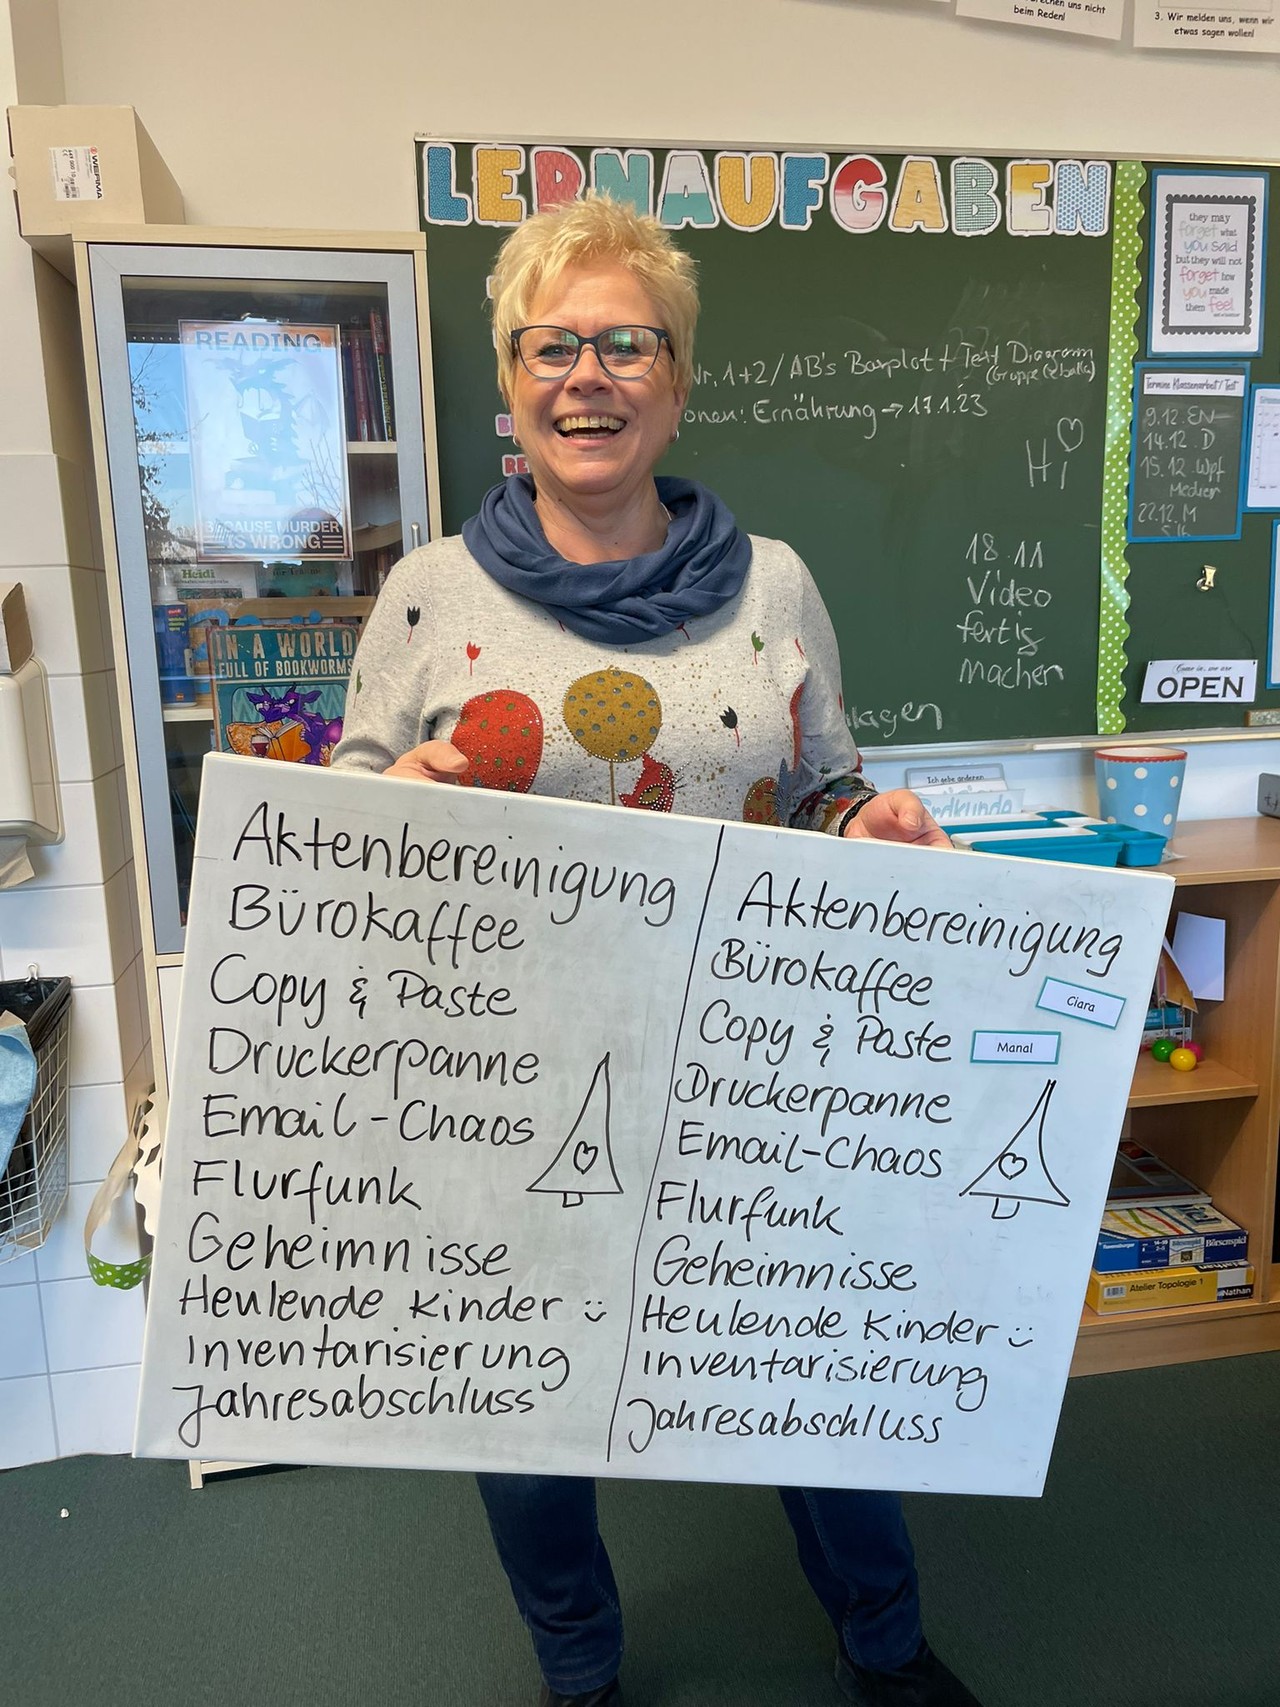 beim Reden!
3. Wir melden uns, wenn wir
etwas sagen wollen!
WERMA
LERNAUFGABEN
they may
forget what
you said
but they will not
forget how
you made
them feel
READING
BECAUSE MURDER
IS WRONG
Heidi
IN A WORLD
FULL OF BOOKWORMS
Nr. 1+2/ AB's Boxplot + Text Diagramm
Ernährung → 17.1.23
Hi
18.11
Video
fertig
machen
Termine Klassenarbeit/Test
9.12. EN
14.12. D
15.12. Wpf
Medien
22.12. M
OPEN
Ich gebe anderen
Erdkunde
Aktenbereinigung
Bürokaffee
Copy & Paste
Druckerpanne
Email-Chaos
Flurfunk
Geheimnisse
Heulende Kinder
Inventarisierung
Jahresabschluss
Aktenbereinigung
Bürokaffee
Ciara
Copy & Paste
Manal
Druckerpanne
Email-Chaos
Flurfunk
Geheimnisse
Heulende Kinder
Inventarisierung
Jahresabschluss
Ravensburger
Börsenspiel
Atelier Topologie 1
Nathan